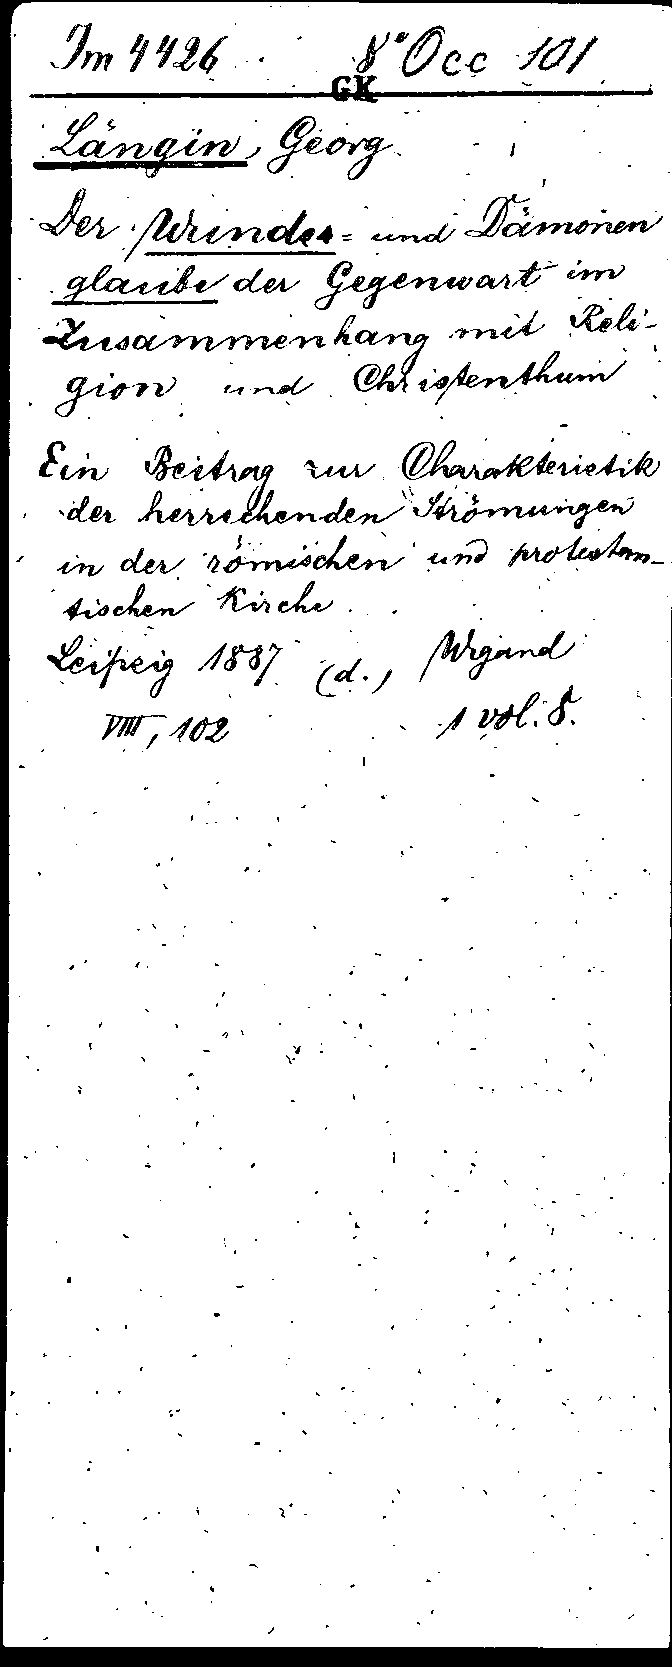 Im 4426 8° Occ 101
GK
Längin, Georg
Der Wunder= und Dämonen
glaube der Gegenwart im
Zusammenhang mit Reli-
gion und Christenthum
Ein Beitrag zur Charakteristik
der herrschenden Strömungen
in der römischen und protestan-
tischen Kirche
Leipzig 1887 (d.) Wigand
VIII, 102 1 vol. 8.